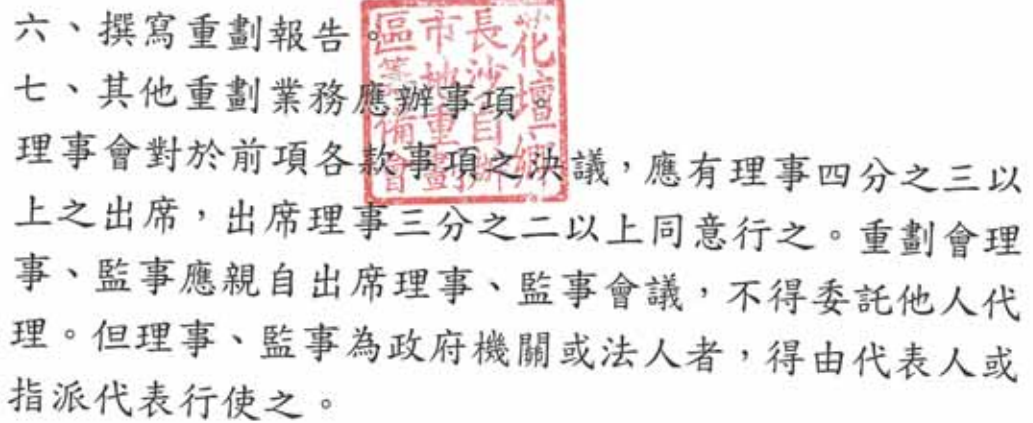 六、撰寫重劃報告。
七、其他重劃業務應辦事項。
理事會對於前項各款事項之決議，應有理事四分之三以
上之出席，出席理事三分之二以上同意行之。重劃會理
事、監事應親自出席理事、監事會議，不得委託他人代
理。但理事、監事為政府機關或法人者，得由代表人或
指派代表行使之。
花壇鄉
長沙自辦
市地重劃
區籌備會